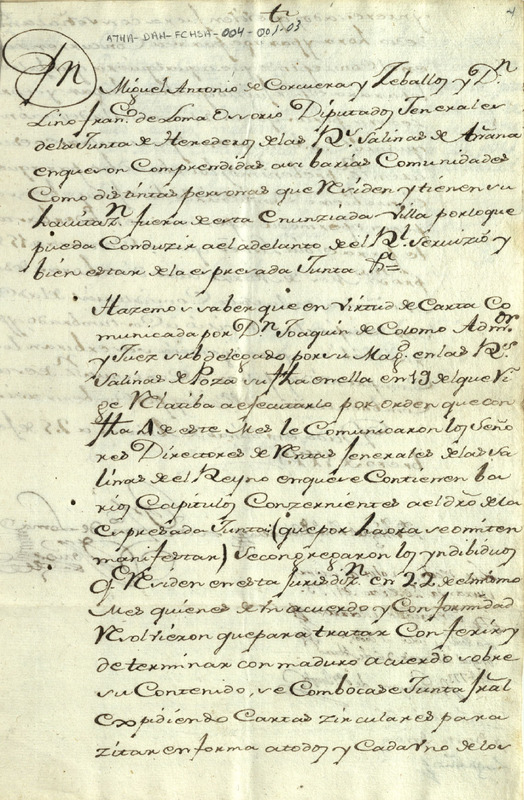 t
ATHA-DAH-FCHSA-004-001-03
Dn
Miguel Antonio de Corcuera y Zeballos y Dn
Lino Franco de Loma Ossorio Diputados Jenerales
de la Junta de Herederos de las Rs Salinas de Añana
en que son Comprendidas asi barias Comunidades
Como distintas personas que Residen y tienen su
havitazn fuera de esta Enunziada Villa por lo que
pueda Conduzir a el adelanto de el Rl Servizio y
bien estar de la expresada Junta
Hazemos saber que en virtud de Carta Co
municada por Dn Joaquin de Colomo Admor
y Juez subdelegado por su Mag en las Rs
Salinas de Poza su fha en ella en 19 del que Ri
ge Relatiba a ejecutarlo por orden que con
fha 4 de este Mes le Comunicaron los Seño
res Directores de Rentas Jenerales de las Sa
linas de el Reyno en que se Contienen ba
rios Capitulos Conzernientes a el dro de la
Expresada Junta (que por haora se omiten
manifestar) se congregaron los yndibiduos
q Residen en esta Jurisdizn en 22 de el mismo
Mes quienes de un acuerdo y Conformidad
Resolvieron que para tratar Conferir y
determinar con maduro acuerdo sobre
su Contenido, se Combocase Junta Jral
Expidiendo Cartas zirculares para
zitar en forma a todos y Cada Uno de los